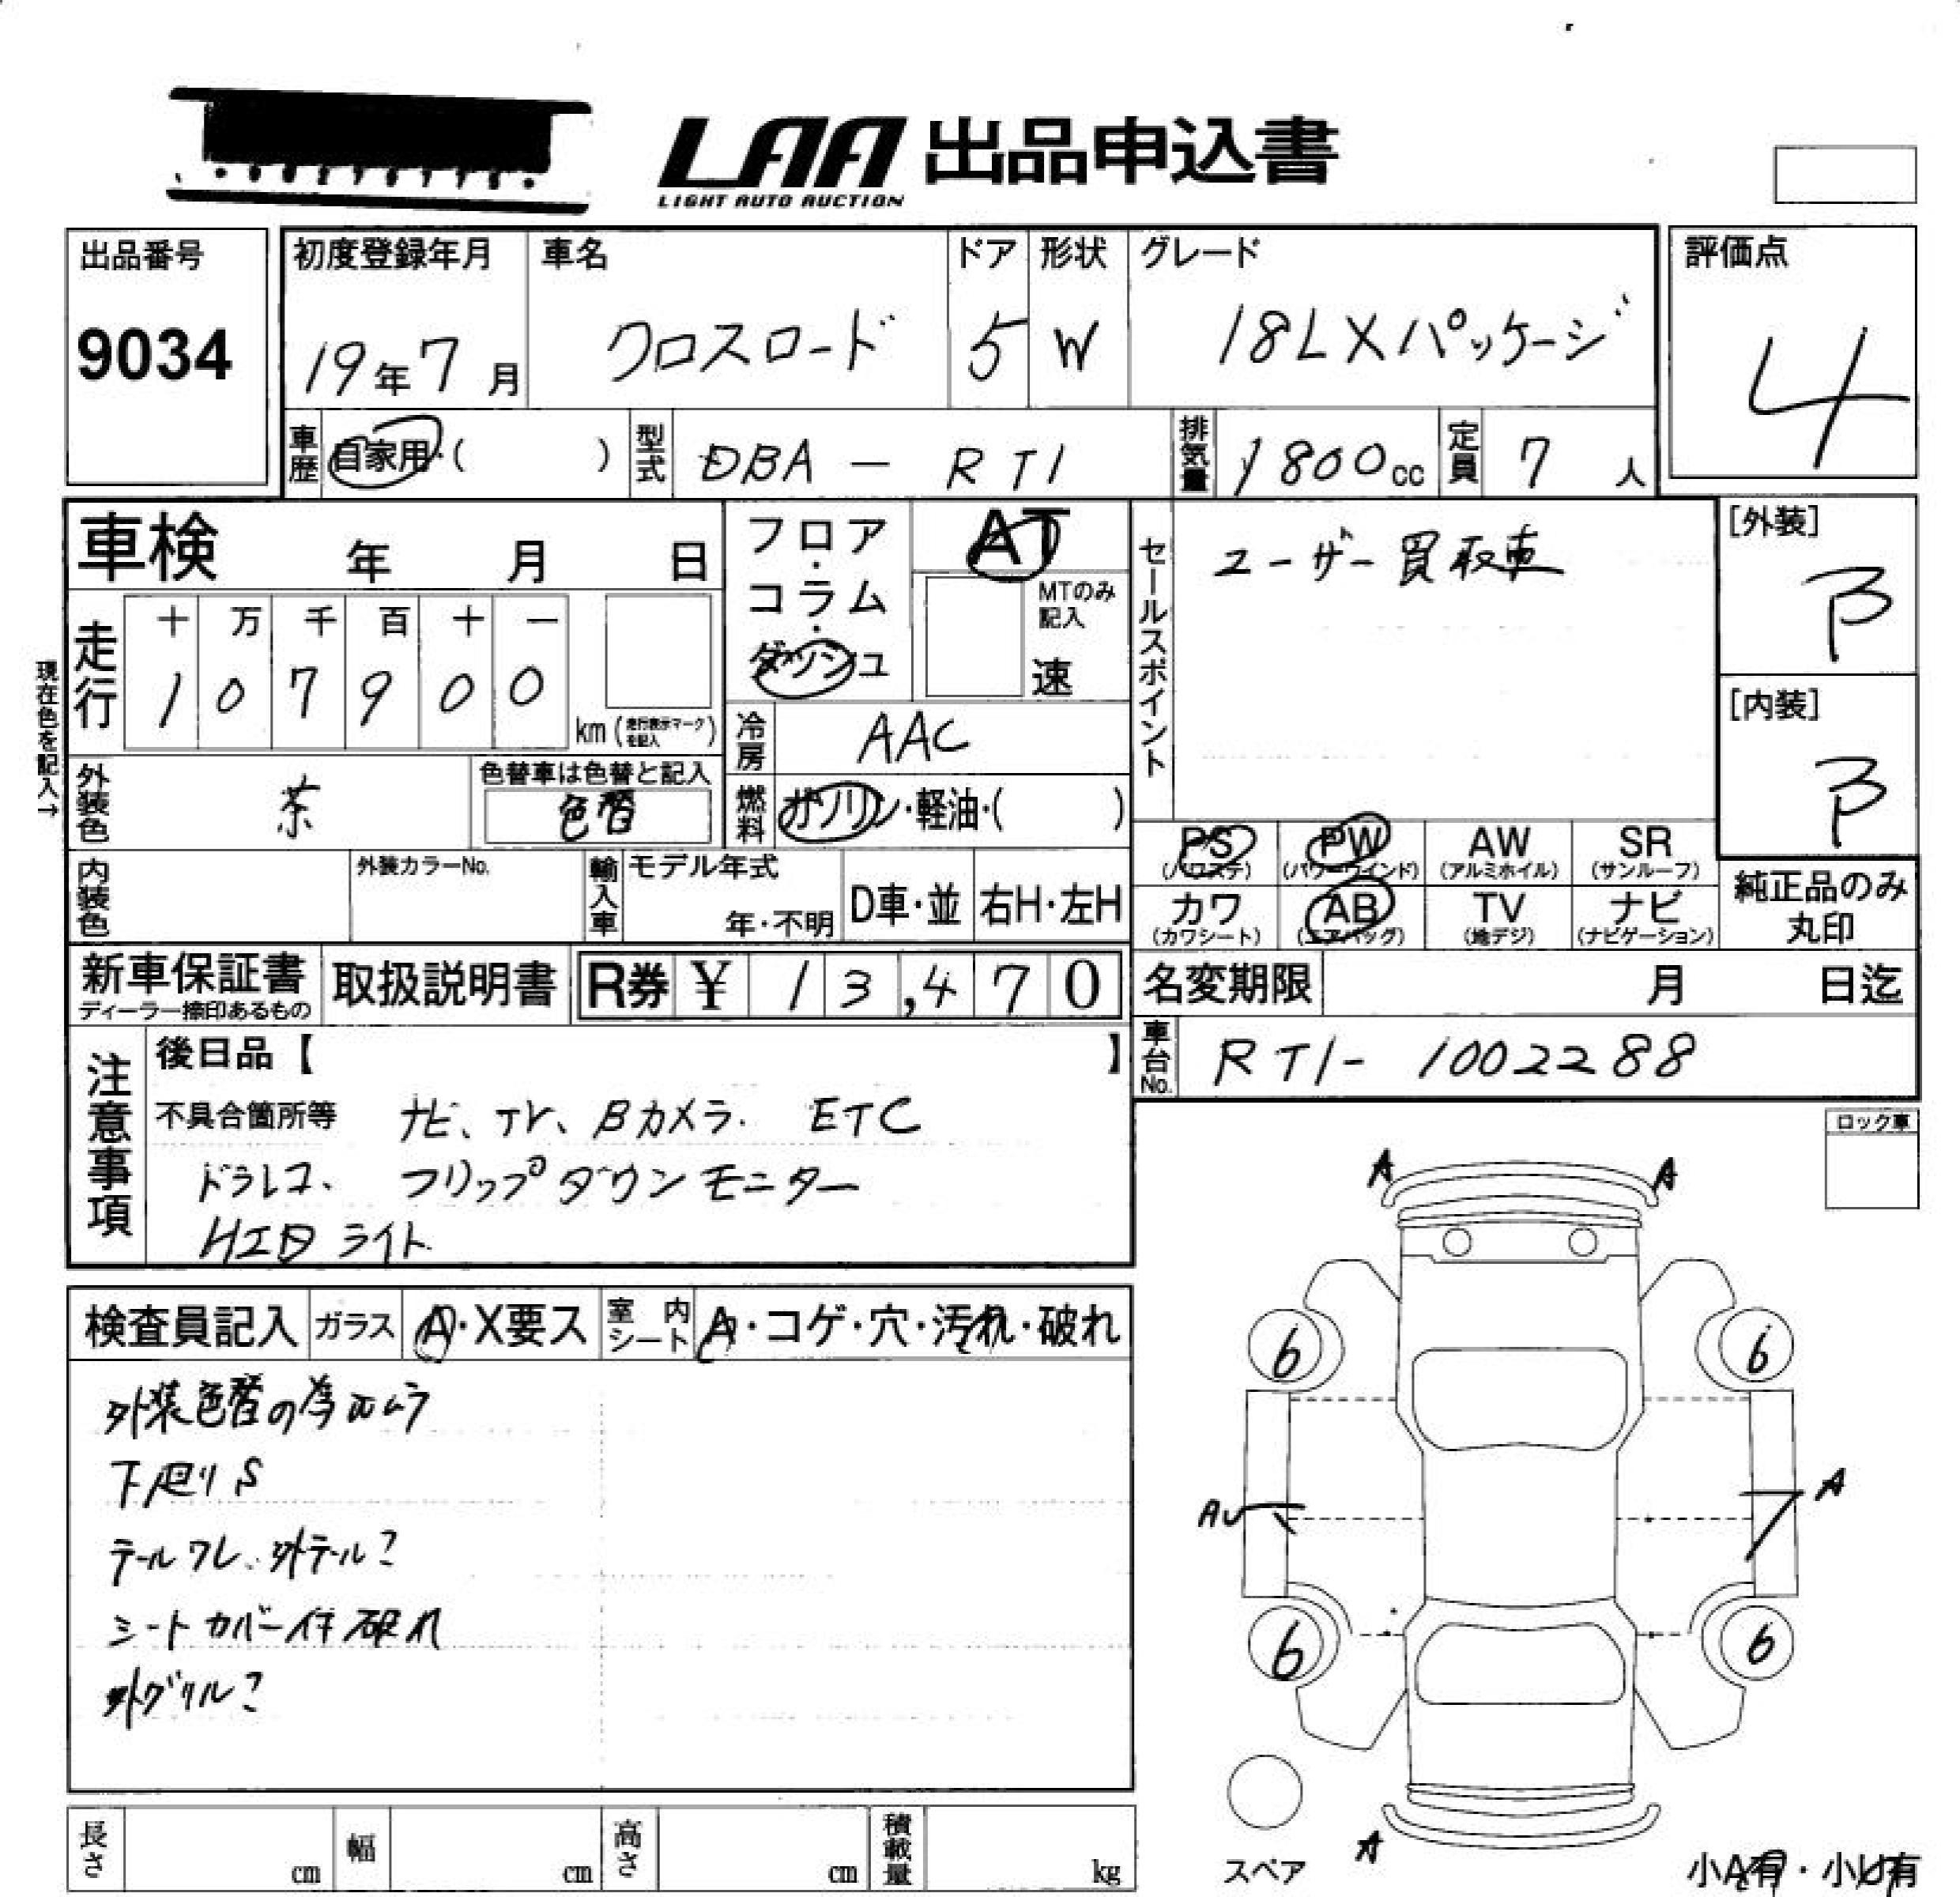 LAA 出品申込書
LIGHT AUTO AUCTION
出品番号
9034
初度登録年月
19年7月
車名
クロスロード
ドア
5
形状
W
グレード
18L Xパッケージ
評価点
4
車歴
自家用・( )
型式
DBA - RT1
排気量
1800cc
定員
7人
車検 年 月 日
現在色を記入→
走行
十 万 千 百 十 一
1 0 7 9 0 0
km (走行表示マークを記入)
フロア・コラム・ダッシュ
AT
MTのみ記入
速
冷房
AAC
燃料
ガソリン・軽油・( )
外装色
茶
色替車は色替と記入
色替
内装色
外装カラーNo.
輸入車
モデル年式
年・不明
D車・並
右H・左H
セールスポイント
ユーザー買取車
[外装]
B
[内装]
B
PS PW AW SR
(パワステ) (パワーウインド) (アルミホイル) (サンルーフ)
カワ AB TV ナビ
(カワシート) (エアバッグ) (地デジ) (ナビゲーション)
純正品のみ
丸印
新車保証書
ディーラー捺印あるもの
取扱説明書
R券 ¥ 13,470
名変期限 月 日迄
車台No.
RT1- 1002288
注意事項
後日品【 】
不具合箇所等 ナビ、TV、Bカメラ. ETC
ドラレコ、フリップダウンモニター
HID ライト
ロック車
検査員記入
ガラス A・X要ス
室内シート A・コゲ・穴・汚れ・破れ
外装色替の為色ムラ
下廻りS
テールワレ、外テール?
シートカバー付破れ
外グリル?
A A
6 6
AU A
6 6
A
スペア
小A有・小U有
長さ cm
幅 cm
高さ cm
積載量 kg